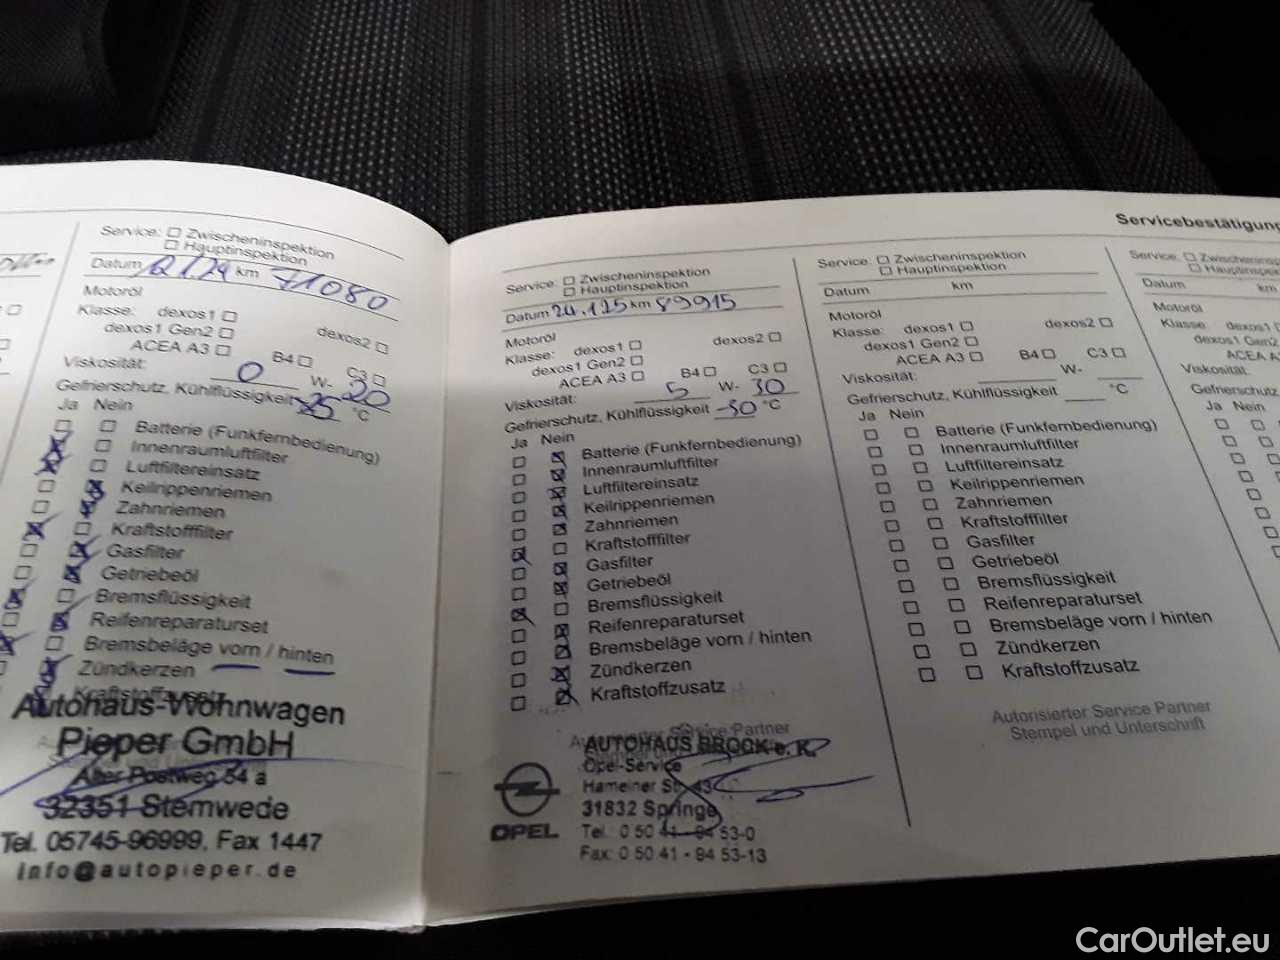 Servicebestätigung
Service: Zwischeninspektion
Hauptinspektion
Datum 2/24 km 71080
Motoröl
Klasse: dexos1 dexos2
dexos1 Gen2
ACEA A3 B4 C3
Viskosität: 0 W- 20
Gefrierschutz, Kühlflüssigkeit °C
Ja Nein
Batterie (Funkfernbedienung)
Innenraumluftfilter
Luftfiltereinsatz
Keilrippenriemen
Zahnriemen
Kraftstofffilter
Gasfilter
Getriebeöl
Bremsflüssigkeit
Reifenreparaturset
Bremsbeläge vorn / hinten
Zündkerzen
Kraftstoffzusatz
Autohaus-Wohnwagen
Pieper GmbH
Alter Postweg 54 a
32351 Stemwede
Tel. 05745-96999, Fax 1447
info@autopieper.de
Service: Zwischeninspektion
Hauptinspektion
Datum 24.1.25 km 89915
Motoröl
Klasse: dexos1 dexos2
dexos1 Gen2
ACEA A3 B4 C3
Viskosität: 5 W- 30
Gefrierschutz, Kühlflüssigkeit -30 °C
Ja Nein
Batterie (Funkfernbedienung)
Innenraumluftfilter
Luftfiltereinsatz
Keilrippenriemen
Zahnriemen
Kraftstofffilter
Gasfilter
Getriebeöl
Bremsflüssigkeit
Reifenreparaturset
Bremsbeläge vorn / hinten
Zündkerzen
Kraftstoffzusatz
Service Partner
AUTOHAUS BROCK e. K.
Opel-Service
Hamelner Str. 43
31832 Springe
OPEL
Tel.: 0 50 41 - 94 53-0
Fax: 0 50 41 - 94 53-13
Service: Zwischeninspektion
Hauptinspektion
Datum km
Motoröl
Klasse: dexos1 dexos2
dexos1 Gen2
ACEA A3 B4 C3
Viskosität: W-
Gefrierschutz, Kühlflüssigkeit °C
Ja Nein
Batterie (Funkfernbedienung)
Innenraumluftfilter
Luftfiltereinsatz
Keilrippenriemen
Zahnriemen
Kraftstofffilter
Gasfilter
Getriebeöl
Bremsflüssigkeit
Reifenreparaturset
Bremsbeläge vorn / hinten
Zündkerzen
Kraftstoffzusatz
Autorisierter Service Partner
Stempel und Unterschrift
Service:
Datum km
Motoröl
Klasse: dexos1
dexos1 Gen2
ACEA
Viskosität:
Ja Nein
CarOutlet.eu